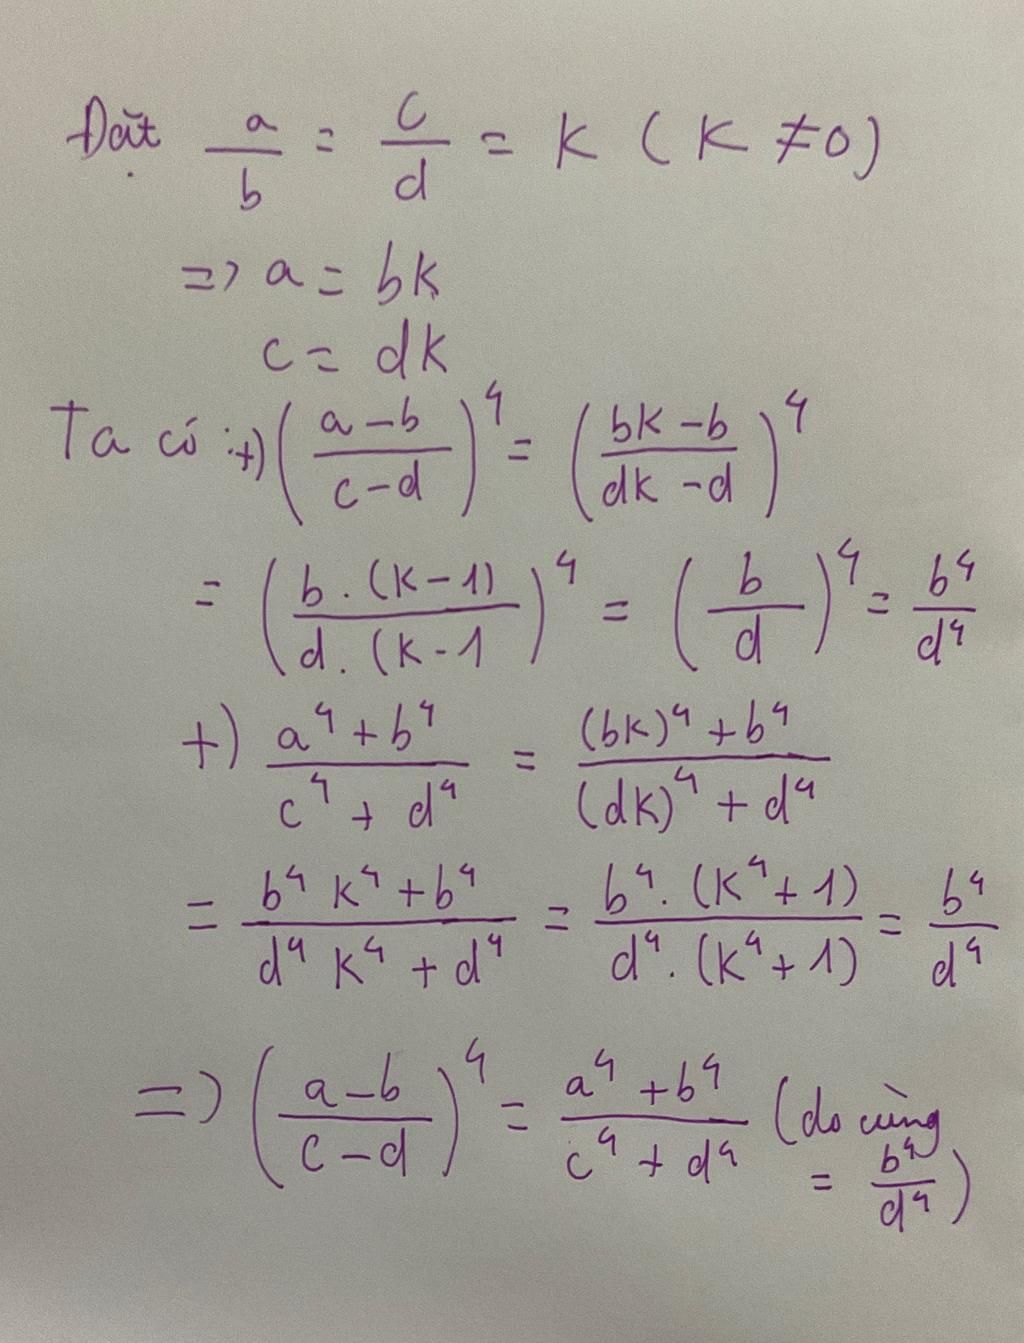 Đặt a/b = c/d = K (K ≠ 0)
=> a = bk
c = dk
Ta có : +) ((a-b)/(c-d))^4 = ((bk-b)/(dk-d))^4
= ((b.(K-1))/(d.(K-1))^4 = (b/d)^4 = b^4/d^4
+) (a^4+b^4)/(c^4+d^4) = ((bk)^4+b^4)/((dk)^4+d^4)
= (b^4 k^4+b^4)/(d^4 k^4+d^4) = (b^4.(K^4+1))/(d^4.(K^4+1)) = b^4/d^4
=> ((a-b)/(c-d))^4 = (a^4+b^4)/(c^4+d^4) (do cùng
= b^4/d^4)